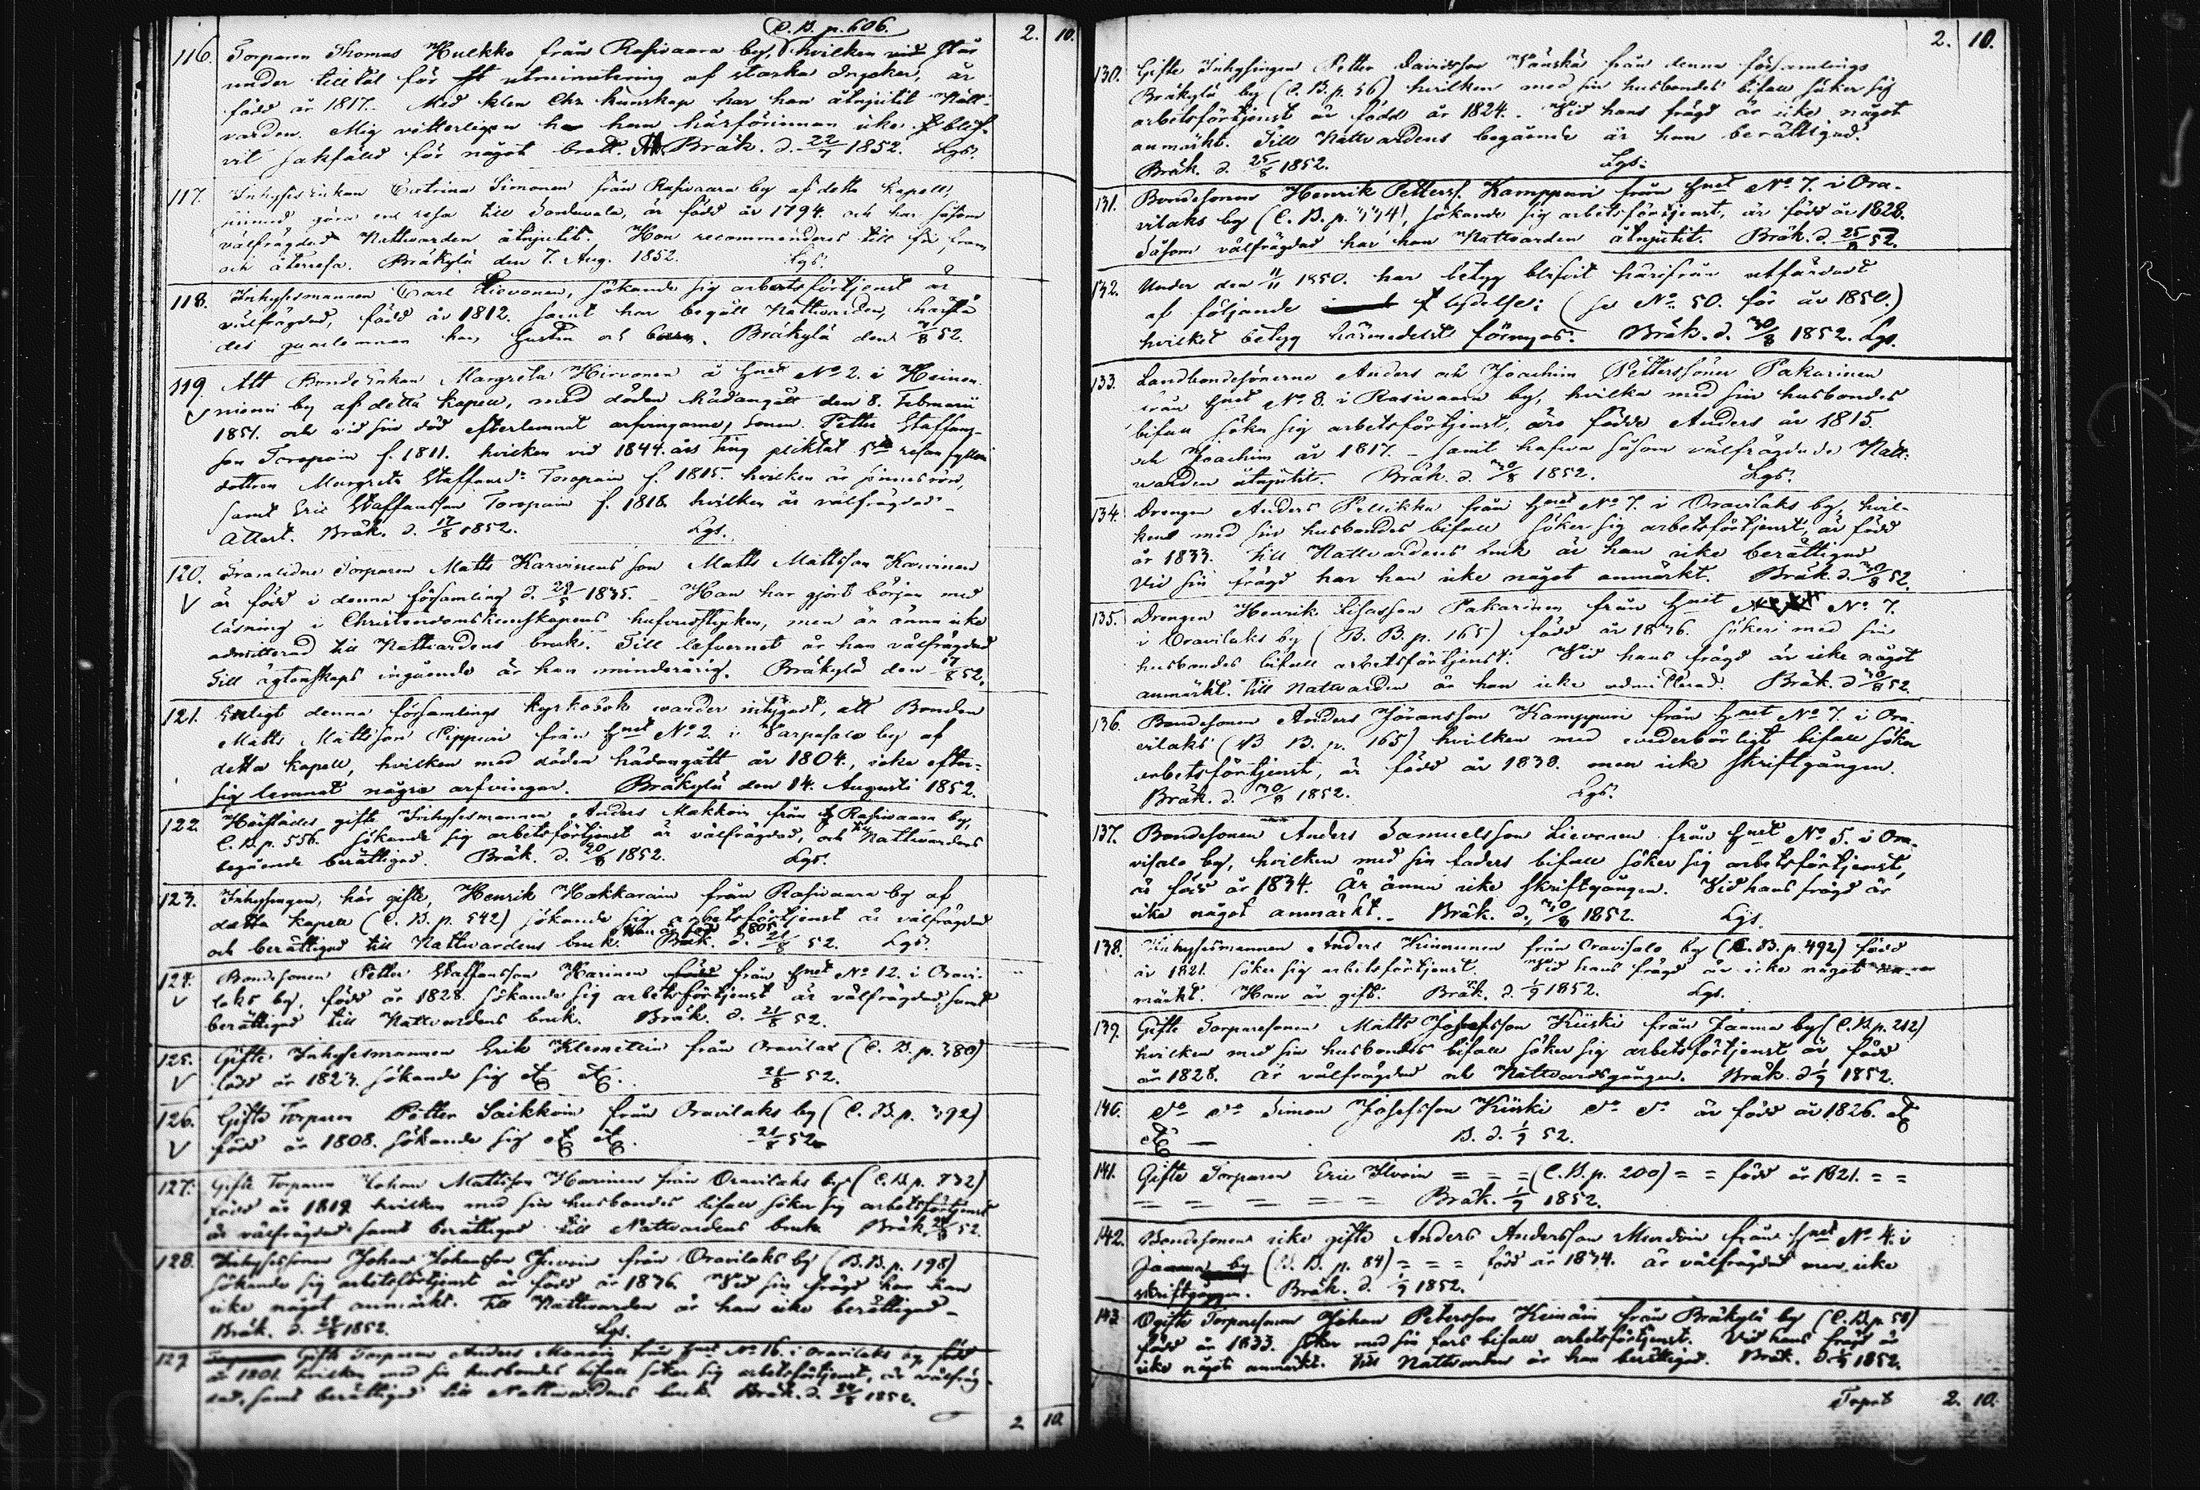 C. B. p. 606.
2. 10.
116. Torparen Thomas Hulkko från Rasivaara by, hvilken står
under tilltal för utminutering af starka drycker, är
född år 1817. Med klen Chr. kunskap har han åtnjutit Natt-
varden. Mig vitterligen har han härförinnan icke blif-
vit sakfälld för något brott. Bräk. d. 22/7 1852. Lgs.
117. Inhyses Enkan Catrina Simonen från Rasivaara by af detta kapell,
göra en resa till Sordavala, är född år 1794. och har såsom
välfrägdad Nattvarden åtnjutit. Hon recommenderes till fri fram
och återresa. Bräkylä den 7. Aug. 1852. Lgs.
118. Inhysesmannen Carl Lievonen, sökande sig arbetsförtjenst är
välfrägdad, född år 1812. samt har begått Nattvarden,
des han, hustru och barn. Bräkylä den 7/8 52.
119. Att BondeEnkan Margreta Hirvonen å Hnet No 2. i Heinon-
niemi by af detta kapell, med döden hädangått den 8. Februarii
1851. och vid sin död efterlemnat arfvingarne, sonen Petter Staffans-
son Toropain f. 1811. hvilken vid 1844. års Ting pliktat 5te resan fylleri
dottren Margreta Staffansdr Toropain f. 1815. hvilken är sinnesvrd,
samt Eric Staffansson Toropain f. 1818 hvilken är välfrägdad -
Attest. Bräk. d. 17/8 1852. Lgs.
120. Framlidne Torparen Matts Karvinens son Matts Mattsson Karvinen
är född i denna församling d. 29/5 1835. - Han har gjort början med
läsning i Christendomskunskapens hufvudstycken, men är ännu icke
admitterad till Nattvardens bruk. Till lefvernet är han välfrägdad
Till ägtenskaps ingående är han minderårig. Bräkylä den 17/8 52.
121. Enligt denna församlings kyrkobok warder intygadt, att Bonden
Matts Mattsson Pippuri från Hnet No 2. i Varpasalo by af
detta kapell, hvilken med döden hädangått år 1804., icke efter-
sig lemnat några arfvingar. Bräkylä den 14. Augusti 1852.
122. Härstädes gifte Inhysesmannen Anders Makkoin från Rasivaara by,
C. B. p. 556. sökande sig arbetsförtjenst är välfrägdad, och till Nattvardens
begående berättigad. Bräk. d. 20/8 1852. Lgs.
123. Inhysingen, här gifte, Henrik Hakkarain från Rasivaara by af
detta kapell (C. B. p. 542) sökande sig arbetsförtjenst är välfrägdad
och berättigad till Nattvardens bruk. Han är född 1805. Bräk. d. 21/8 52. Lgs.
124. Bondesonen Petter Staffansson Karinen från Hnet No 12. i Oravi-
laks by, född år 1828. sökande sig arbetsförtjenst är välfrägdad, samt
berättigad till Nattvardens bruk. Bräk. d. 21/8 52.
125. Gifte Inhysesmannen Erik Klemettin från Oravilax (C. B. p. 380)
född år 1823. sökande sig etc etc. 21/8 52.
126. Gifte Torparen Petter Saikkoin från Oravilaks by (C. B. p. 392)
född år 1808. sökande sig etc etc. 21/8 52
127. Gifte Torparen Johan Mattsson Karinen från Oravilaks by (C. B. p. 832)
född år 1819 hvilken med sin husbondes bifall söker sig arbetsförtjenst
är välfrägdad samt berättigad till Nattvardens bruk. Bräk. 24/8 52.
128. Inhysessonen Johan Johansson Juvoin från Oravilaks by (B. B. p. 198)
sökande sig arbetsförtjenst är född år 1836. Vid sin frägd har han
icke något anmärkt. Till Nattvarden är han icke berättigad -
Bräk. d. 24/8 1852. Lgs.
129. Gifte Torparen Anders från Hnet No 16. i Oravilaks by, född
år 1801. hvilken med sin husbondes bifall söker sig arbetsförtjenst, är välfräg-
dad, samt berättigad till Nattvardens bruk. Bräk. d. 24/8 1852.
2 10.
2. 10.
130. Gifte Inhysingen Petter Davidsson Vänskä från denna församlings
Bräkylä by (C. B. p. 56) hvilken med sin husbondes bifall söker sig
arbetsförtjenst är född år 1824. Vid hans frägd är icke något
anmärkt. Till Nattvardens begående är han berättigad.
Bräk. d. 25/8 1852. Lgs.
131. Bondesonen Henrik Petterss. Kamppuri från Hnet No 7. i Ora-
vilaks by (C. B. p. 334), sökande sig arbetsförtjenst, är född år 1828.
Såsom välfrägdad har han Nattvarden åtnjutit. Bräk. d. 25/8 52.
132. Under den 11/11 1850. har betyg blifvit härifrån utfärdadt
af följande lydelse: (se No 50. för år 1850.)
hvilket betyg härmedelst förnyas. Bräk. d. 30/8 1852. Lgs.
133. Landbondesönerna Anders och Joachim Petterssöner Pakarinen
från Hnet No 8. i Rasivaara by, hvilka med sin husbondes
bifall söka sig arbetsförtjenst, äro födde Anders år 1815.
och Joachim år 1817. - samt hafva såsom välfrägdade Natt-
varden åtnjutit. Bräk. d. 30/8 1852. Lgs.
134. Drengen Anders Pellikka från Hnet No 7. i Oravilaks by, hvil-
ken med sin husbondes bifall söker sig arbetsförtjenst, är född
år 1833. Till Nattvardens bruk är han icke berättigad
Vid sin frägd har han icke något anmärkt. Bräk. d. 30/8 52.
135. Drengen Henrik Pakarinen från Hnet No 7.
i Oravilaks by (B. B. p. 165) född år 1836. söker med sin
husbondes bifall arbetsförtjenst. Vid hans frägd är icke något
anmärkt. Till Nattvarden är han icke admitterad. Bräk. d 30/8 52.
136. Bondesonen Anders Jöransson Kamppuri från Hnet No 7. i Ora-
vilaks (B. B. p. 165) hvilken med vederbörligt bifall söker
arbetsförtjenst, är född år 1838. men icke skriftgången.
Bräk. d. 30/8 1852. Lgs.
137. Bondesonen Anders Samuelsson Lievonen från Hnet No 5. i Ora-
visalo by, hvilken med sin faders bifall söker sig arbetsförtjenst,
är född år 1834. Är ännu icke skriftgången. Vid hans frägd är
icke något anmärkt. - Bräk. d. 30/8 1852. Lgs.
138. Inhysesmannen Anders Kinnunen från Oravisalo by (C. B. p. 492) född
år 1821. söker sig arbetsförtjenst. Vid hans frägd är icke något an-
märkt. Han är gift. Bräk. d. 1/9 1852. Lgs.
139. Gifte Torparesonen Matts Josefsson Kiiski från Jaama by (C. B. p. 212)
hvilken med sin husbondes bifall söker sig arbetsförtjenst är född
år 1828. är välfrägdad och Nattvardsgången. Bräk. d 1/9 1852.
140. do do Simon Josefsson Kiiski do do är född år 1826. etc
etc - B. d. 1/9 52.
141. Gifte Torparen Eric Ilvoin = = = (C. B. p. 200) = = född år 1821. = =
= = = = = = Bräk. 1/9 1852.
142. Bondesonen icke gifte Anders Andersson Murdoin från Hnet No 4. i
Jaama by (B. B. p. 84) = = = född år 1834. är välfrägdad men icke
skriftgången. Bräk. d. 1/9 1852.
143. Ogifte Torparesonen Johan Petersson Keinäin från Bräkylä by (C. B. p. 58)
född år 1833. söker med sin fars bifall arbetsförtjenst. Vid hans frägd är
icke något anmärkt. Till Nattvarden är han berättigad. Bräk. d 1/9 1852.
Trpt 2. 10.